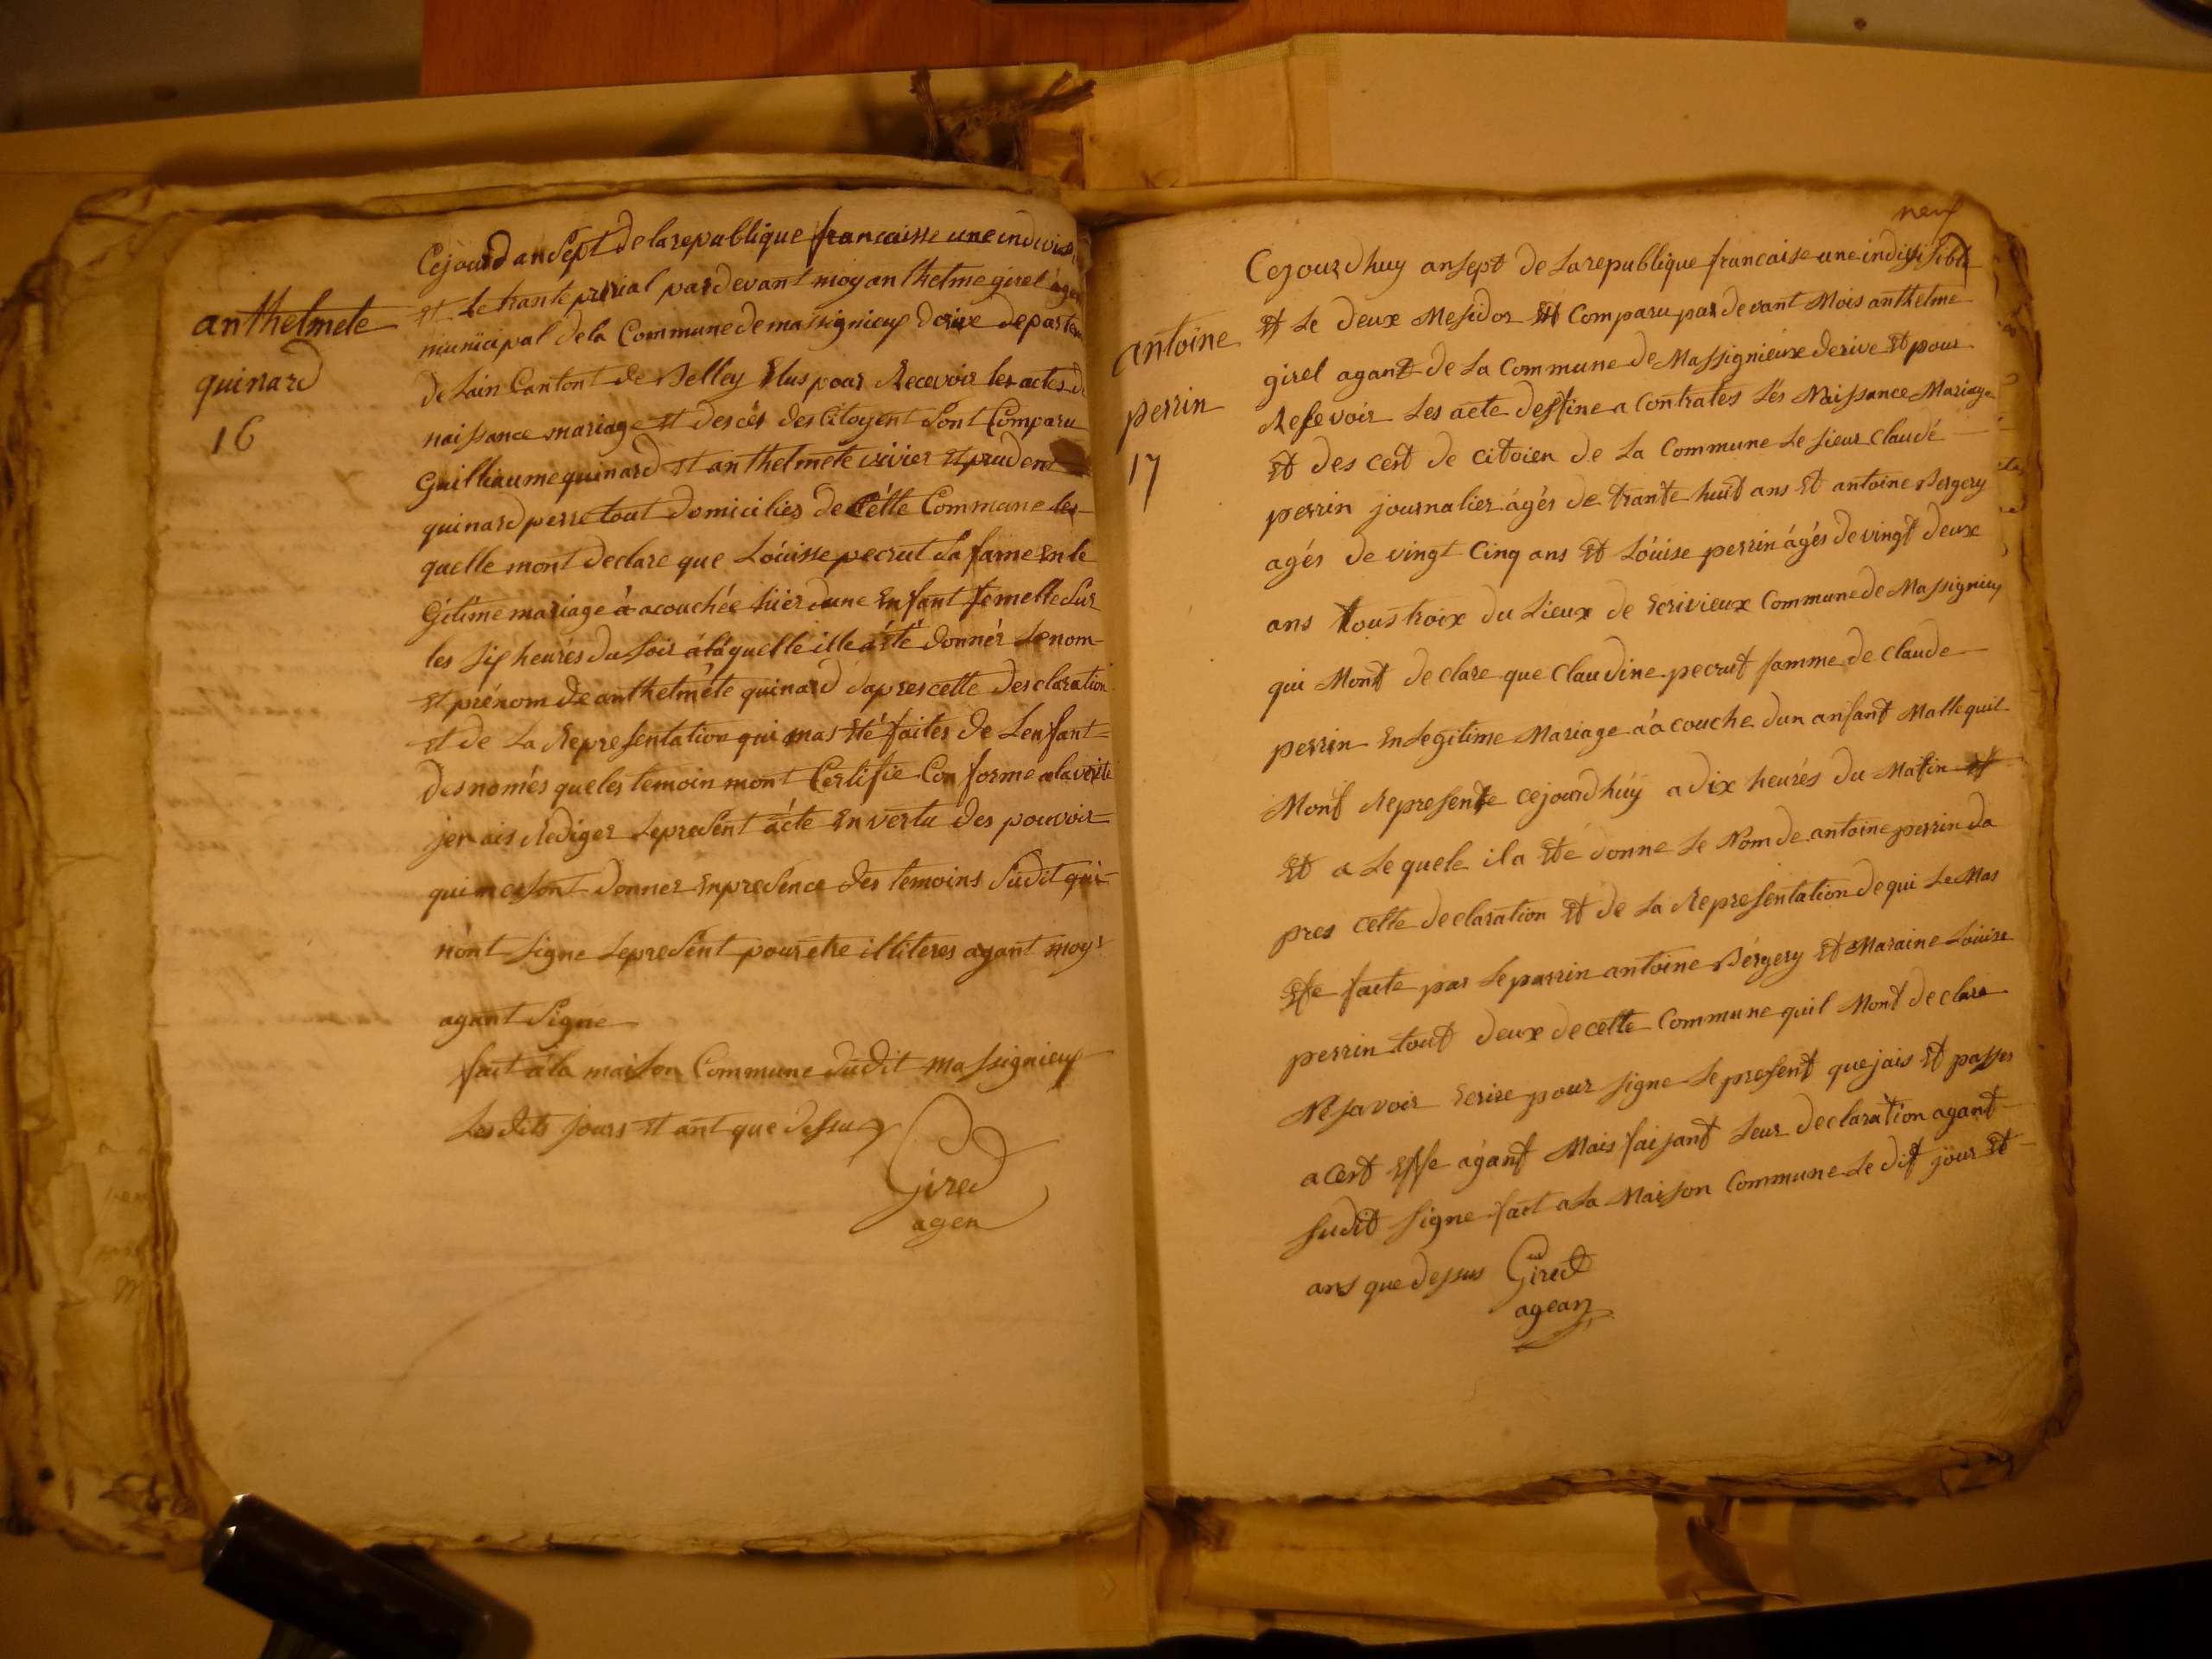 anthelmete
quinard
16
Cejourd an Sept de la republique francaisse une indivis
et le trante prerial pardevant moy anthelme girel agen
municipal de la Commune de massignieux derive departem
de Lain Cantont de Belley Elus pour Recevoir les actes d
naissance mariage et descés des Citoyent Sont Comparu
Guilliaume quinard et anthelmete vivier et prudent
quinard perre tout domicilies de Cétte Commune les
quelle mont declare que Loúisse pecrut Sa fame en le
Gitime mariage á acouchée hier dune Enfant femelle Sur
les Six heures du Soir á láquelle ille á été donnér Le nom
et prénom de anthelméte quinard daprescette desclaration
et de La Representation qui mas été faites de Lenfant
desnomés que les temoin mont Certifie Conforme a la verité
jen ais Rediger Le present ácte En vertu des pouvoir
qui me sont donner En presence des temoins Sudit qui
nont Signe Le present pour etre illiteres agant moy
agant Signe
fait á la maison Commune dudit massignieux
Les dits jours et ant que dessu
Girel
agen
neuf
antoine
perrin
17
Cejourdhuy an sept de La republique francaise une indivisible
Et Le deux Mesidor Et Comparu par devant Mois anthelme
girel agant de La Commune de Massignieux derive Et pour
Resevoir Les acte dessine a Contrates Lés Naissance Mariage
Et des cest de citoien de La Commune Le sieur Claudé
perrin journalier ágés de trante huit ans Et antoine Bergery
agés de vingt Cinq ans Et Loúise perrin ágés de vingt deux
ans tous troix du Lieux de Ecrivieux Commune de Massignieux
qui Mont declare que Claudine pecrut famme de Claude
perrin En Legitime Mariage a á couche dun anfant Malle quil
Mont Represente cejourdhúy a dix heurés du Matin et
Et a Le quele il a Eté donne Le Nom de antoine perrin da
pres cette declaration Et de La Representation de qui Le Mas
Ete faite par Le parrin antoine Bérgery Et Maraine Loúise
perrin tout deux de cette Commune quil Mont declare
Ne savoir Ecrire pour signe Le present que jais Et passes
a cest Esse ágant Mais faisant Leur declaration agant
sudit signe fait a La Maison Commune Le dit jour Et
ans que dessus Girel
agean